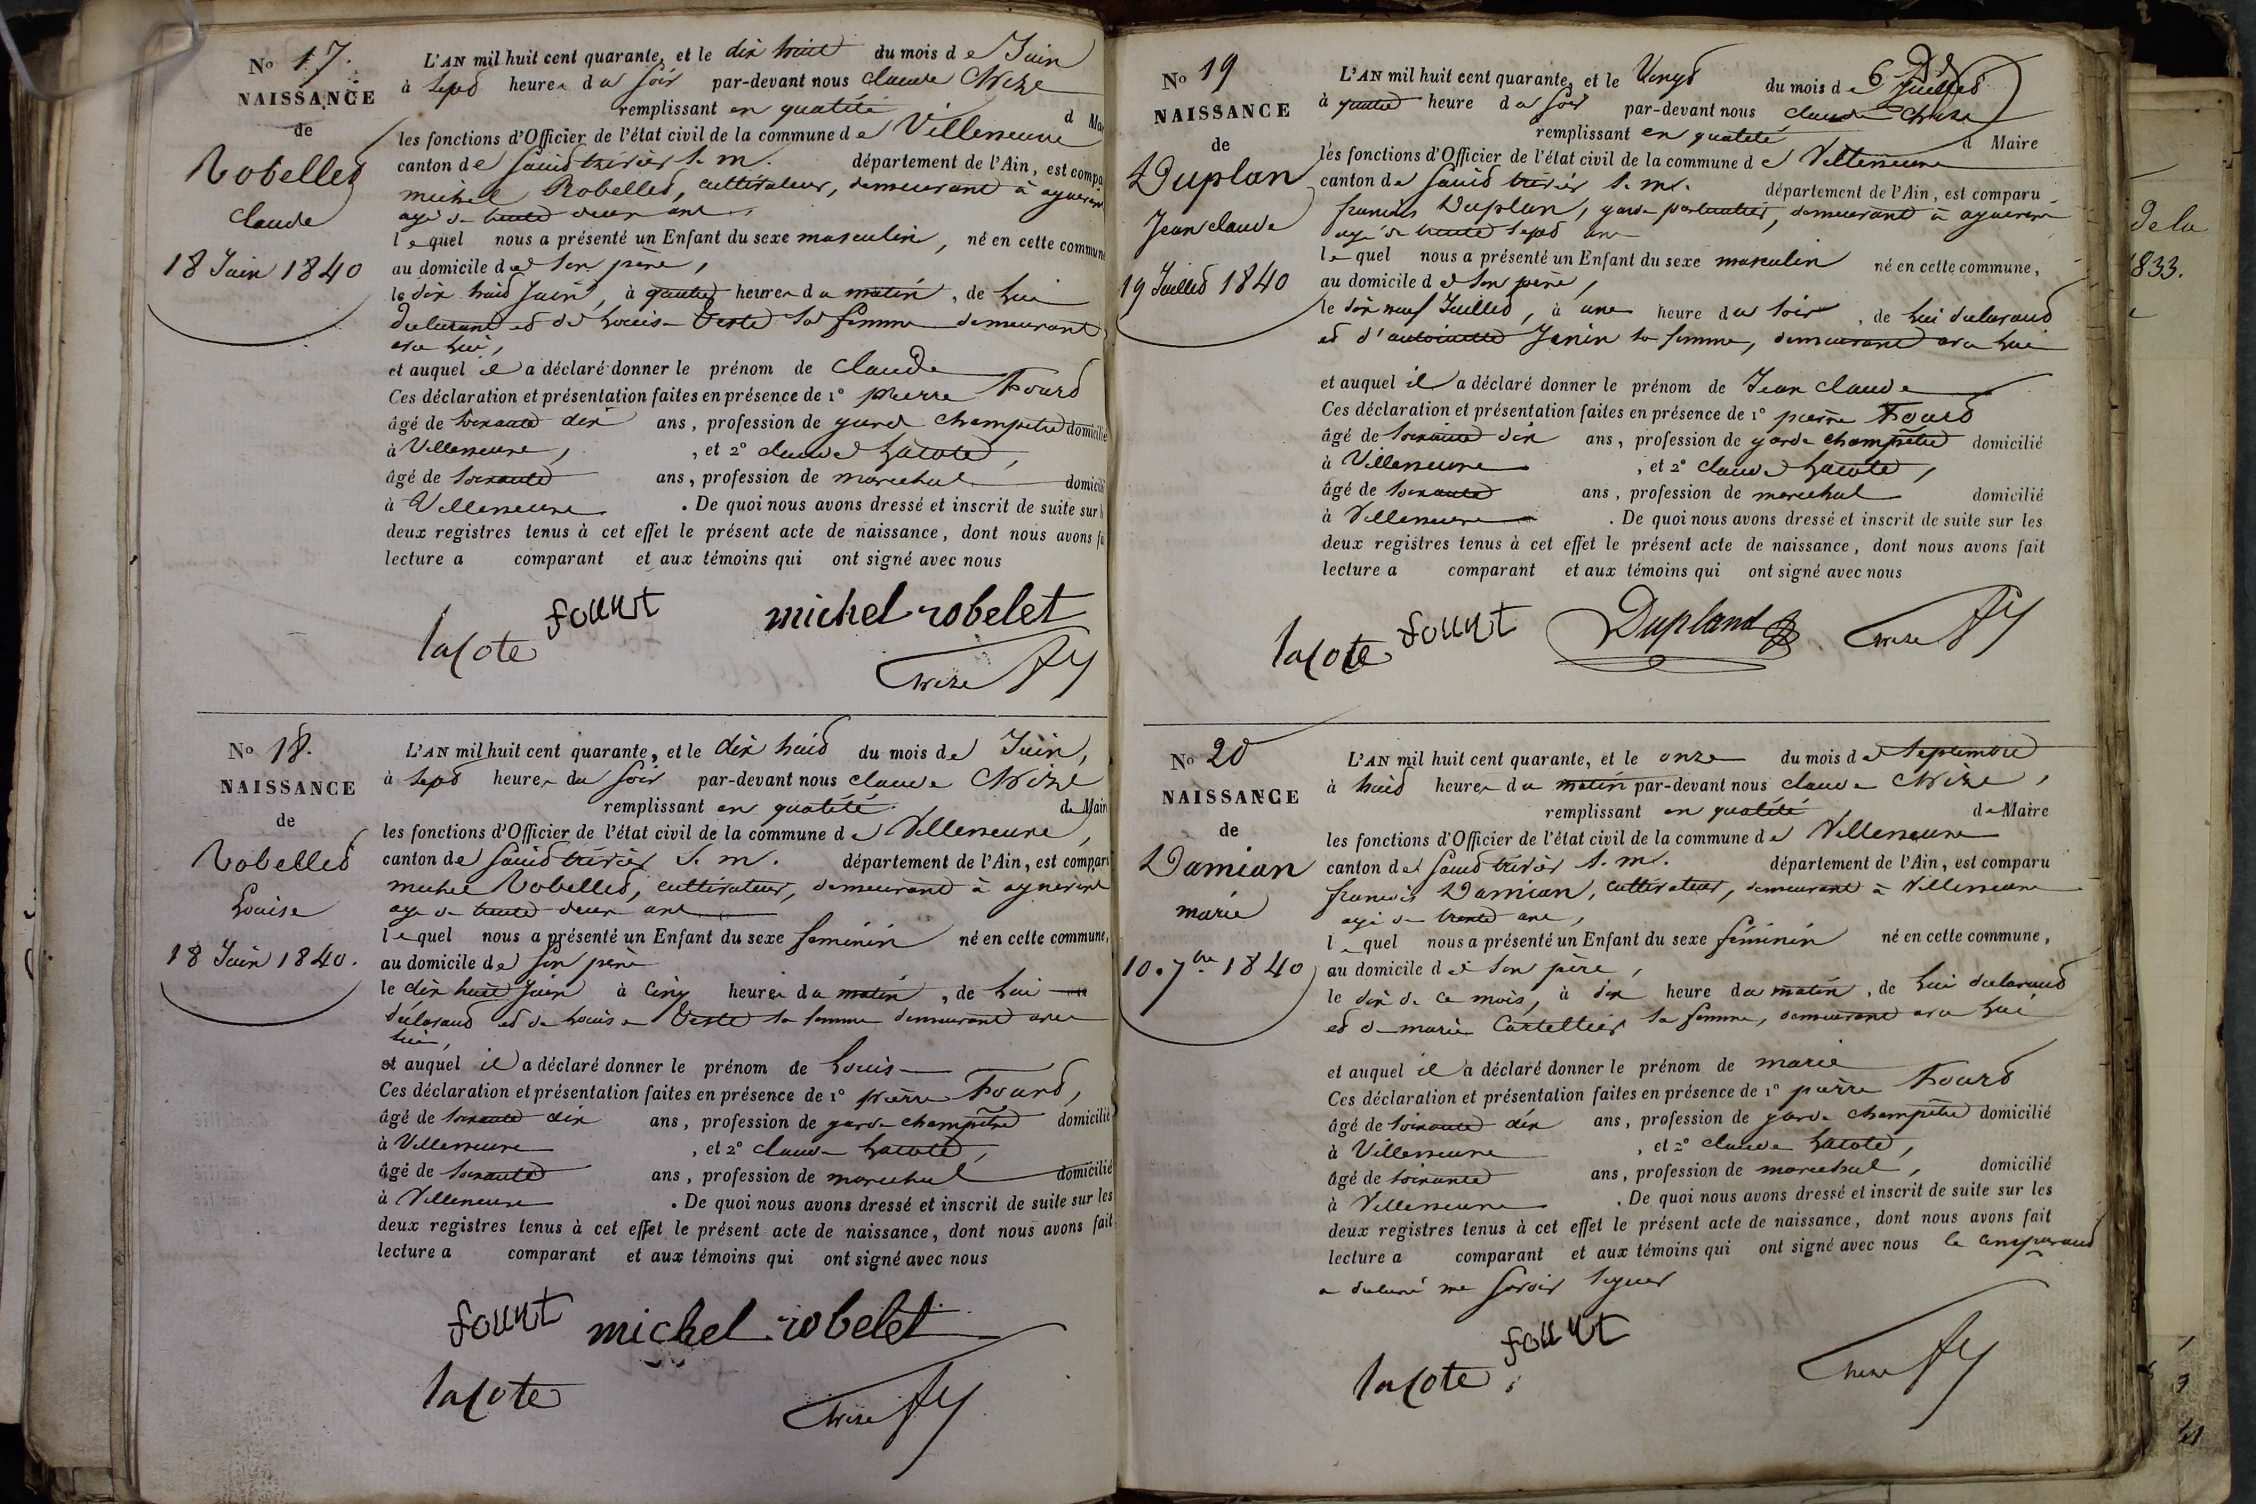 No 17.
NAISSANCE
de
Robellet
Claude
18 Juin 1840
L'AN mil huit cent quarante, et le dix huit du mois de Juin
à sept heures du soir par-devant nous Claude Chize
remplissant en qualité d Ma
les fonctions d'Officier de l'état civil de la commune de Villeneuve
canton de Saint trivier S. m. département de l'Ain, est compa
michel Robellet, cultivateur, demeurant à
agé de trente deux ans,
lequel nous a présenté un Enfant du sexe masculin, né en cette commune
au domicile de son père,
le dix huit Juin, à quatre heures du matin, de lui
declarant et de Louise Veste sa femme demeurant
avec lui,
et auquel il a déclaré donner le prénom de Claude
Ces déclaration et présentation faites en présence de 1º pierre Fourt
âgé de soixante dix ans, profession de garde champetre domicilié
à Villeneuve, , et 2º claude Lacote,
âgé de soixante ans, profession de marechal domicili
à Villeneuve . De quoi nous avons dressé et inscrit de suite sur l
deux registres tenus à cet effet le présent acte de naissance, dont nous avons fa
lecture a comparant et aux témoins qui ont signé avec nous
fourt michel robelet
lacote
Chize
No 18.
NAISSANCE
de
Robellet
Louise
18 Juin 1840.
L'AN mil huit cent quarante, et le dix huit du mois de Juin,
à sept heures du soir par-devant nous claude Chize
remplissant en qualité de Mair
les fonctions d'Officier de l'état civil de la commune de Villeneuve,
canton de Saint trivier S. m. département de l'Ain, est compar
michel Robellet, cultivateur, demeurant à
agé de trente deux ans
lequel nous a présenté un Enfant du sexe feminin né en cette commune,
au domicile de son père
le dix huit Juin à cinq heures du matin, de lui
déclarant et de Louise Veste sa femme demeurant avec
lui,
et auquel il a déclaré donner le prénom de Louise
Ces déclaration et présentation faites en présence de 1º pierre Fourt,
âgé de soixante dix ans, profession de garde champêtre domicilié
à Villeneuve , et 2º claude Lacote,
âgé de soixante ans, profession de marechal domicilié
à Villeneuve . De quoi nous avons dressé et inscrit de suite sur les
deux registres tenus à cet effet le présent acte de naissance, dont nous avons fait
lecture a comparant et aux témoins qui ont signé avec nous
fourt michel robelet
lacote
Chize
No 19
NAISSANCE
de
Duplan
Jean claude
19 Juillet 1840
L'AN mil huit cent quarante, et le Vingt du mois de Juillet
à quatre heure du soir par-devant nous claude Chize
remplissant en qualité d Maire
les fonctions d'Officier de l'état civil de la commune de Villeneuve
canton de Saint trivier S. m. département de l'Ain, est comparu
francois Duplan, garde particulier, demeurant à
agé de trente sept ans
lequel nous a présenté un Enfant du sexe masculin né en cette commune,
au domicile de son père,
le dix neuf Juillet, à une heure du soir, de lui declarant
et d'antoinette Janin sa femme, demeurant avec lui
et auquel il a déclaré donner le prénom de Jean claude
Ces déclaration et présentation faites en présence de 1º pierre Fourt
âgé de soixante dix ans, profession de garde champêtre domicilié
à Villeneuve , et 2º claude Lacote,
âgé de soixante ans, profession de marechal domicilié
à Villeneuve . De quoi nous avons dressé et inscrit de suite sur les
deux registres tenus à cet effet le présent acte de naissance, dont nous avons fait
lecture a comparant et aux témoins qui ont signé avec nous
lacote fourt Dupland Chize
No 20
NAISSANCE
de
Damian
marie
10. 7bre 1840
L'AN mil huit cent quarante, et le onze du mois de Septembre
à huit heures du matin par-devant nous claude Chize,
remplissant en qualité de Maire
les fonctions d'Officier de l'état civil de la commune de Villeneuve
canton de Saint trivier S. m. département de l'Ain, est comparu
francois Damian, cultivateur, demeurant à Villeneuve
agé de trente ans,
lequel nous a présenté un Enfant du sexe féminin né en cette commune,
au domicile de son père,
le dix de ce mois, à dix heure du matin, de lui declarant
et de marie Cartellier sa femme, demeurant avec lui
et auquel il a déclaré donner le prénom de marie
Ces déclaration et présentation faites en présence de 1º pierre Fourt
âgé de soixante dix ans, profession de garde champêtre domicilié
à Villeneuve , et 2º claude Lacote,
âgé de soixante ans, profession de marechal, domicilié
à Villeneuve . De quoi nous avons dressé et inscrit de suite sur les
deux registres tenus à cet effet le présent acte de naissance, dont nous avons fait
lecture a comparant et aux témoins qui ont signé avec nous le comparant
a declaré ne savoir signer
fourt
lacote Chize
de la
1833.